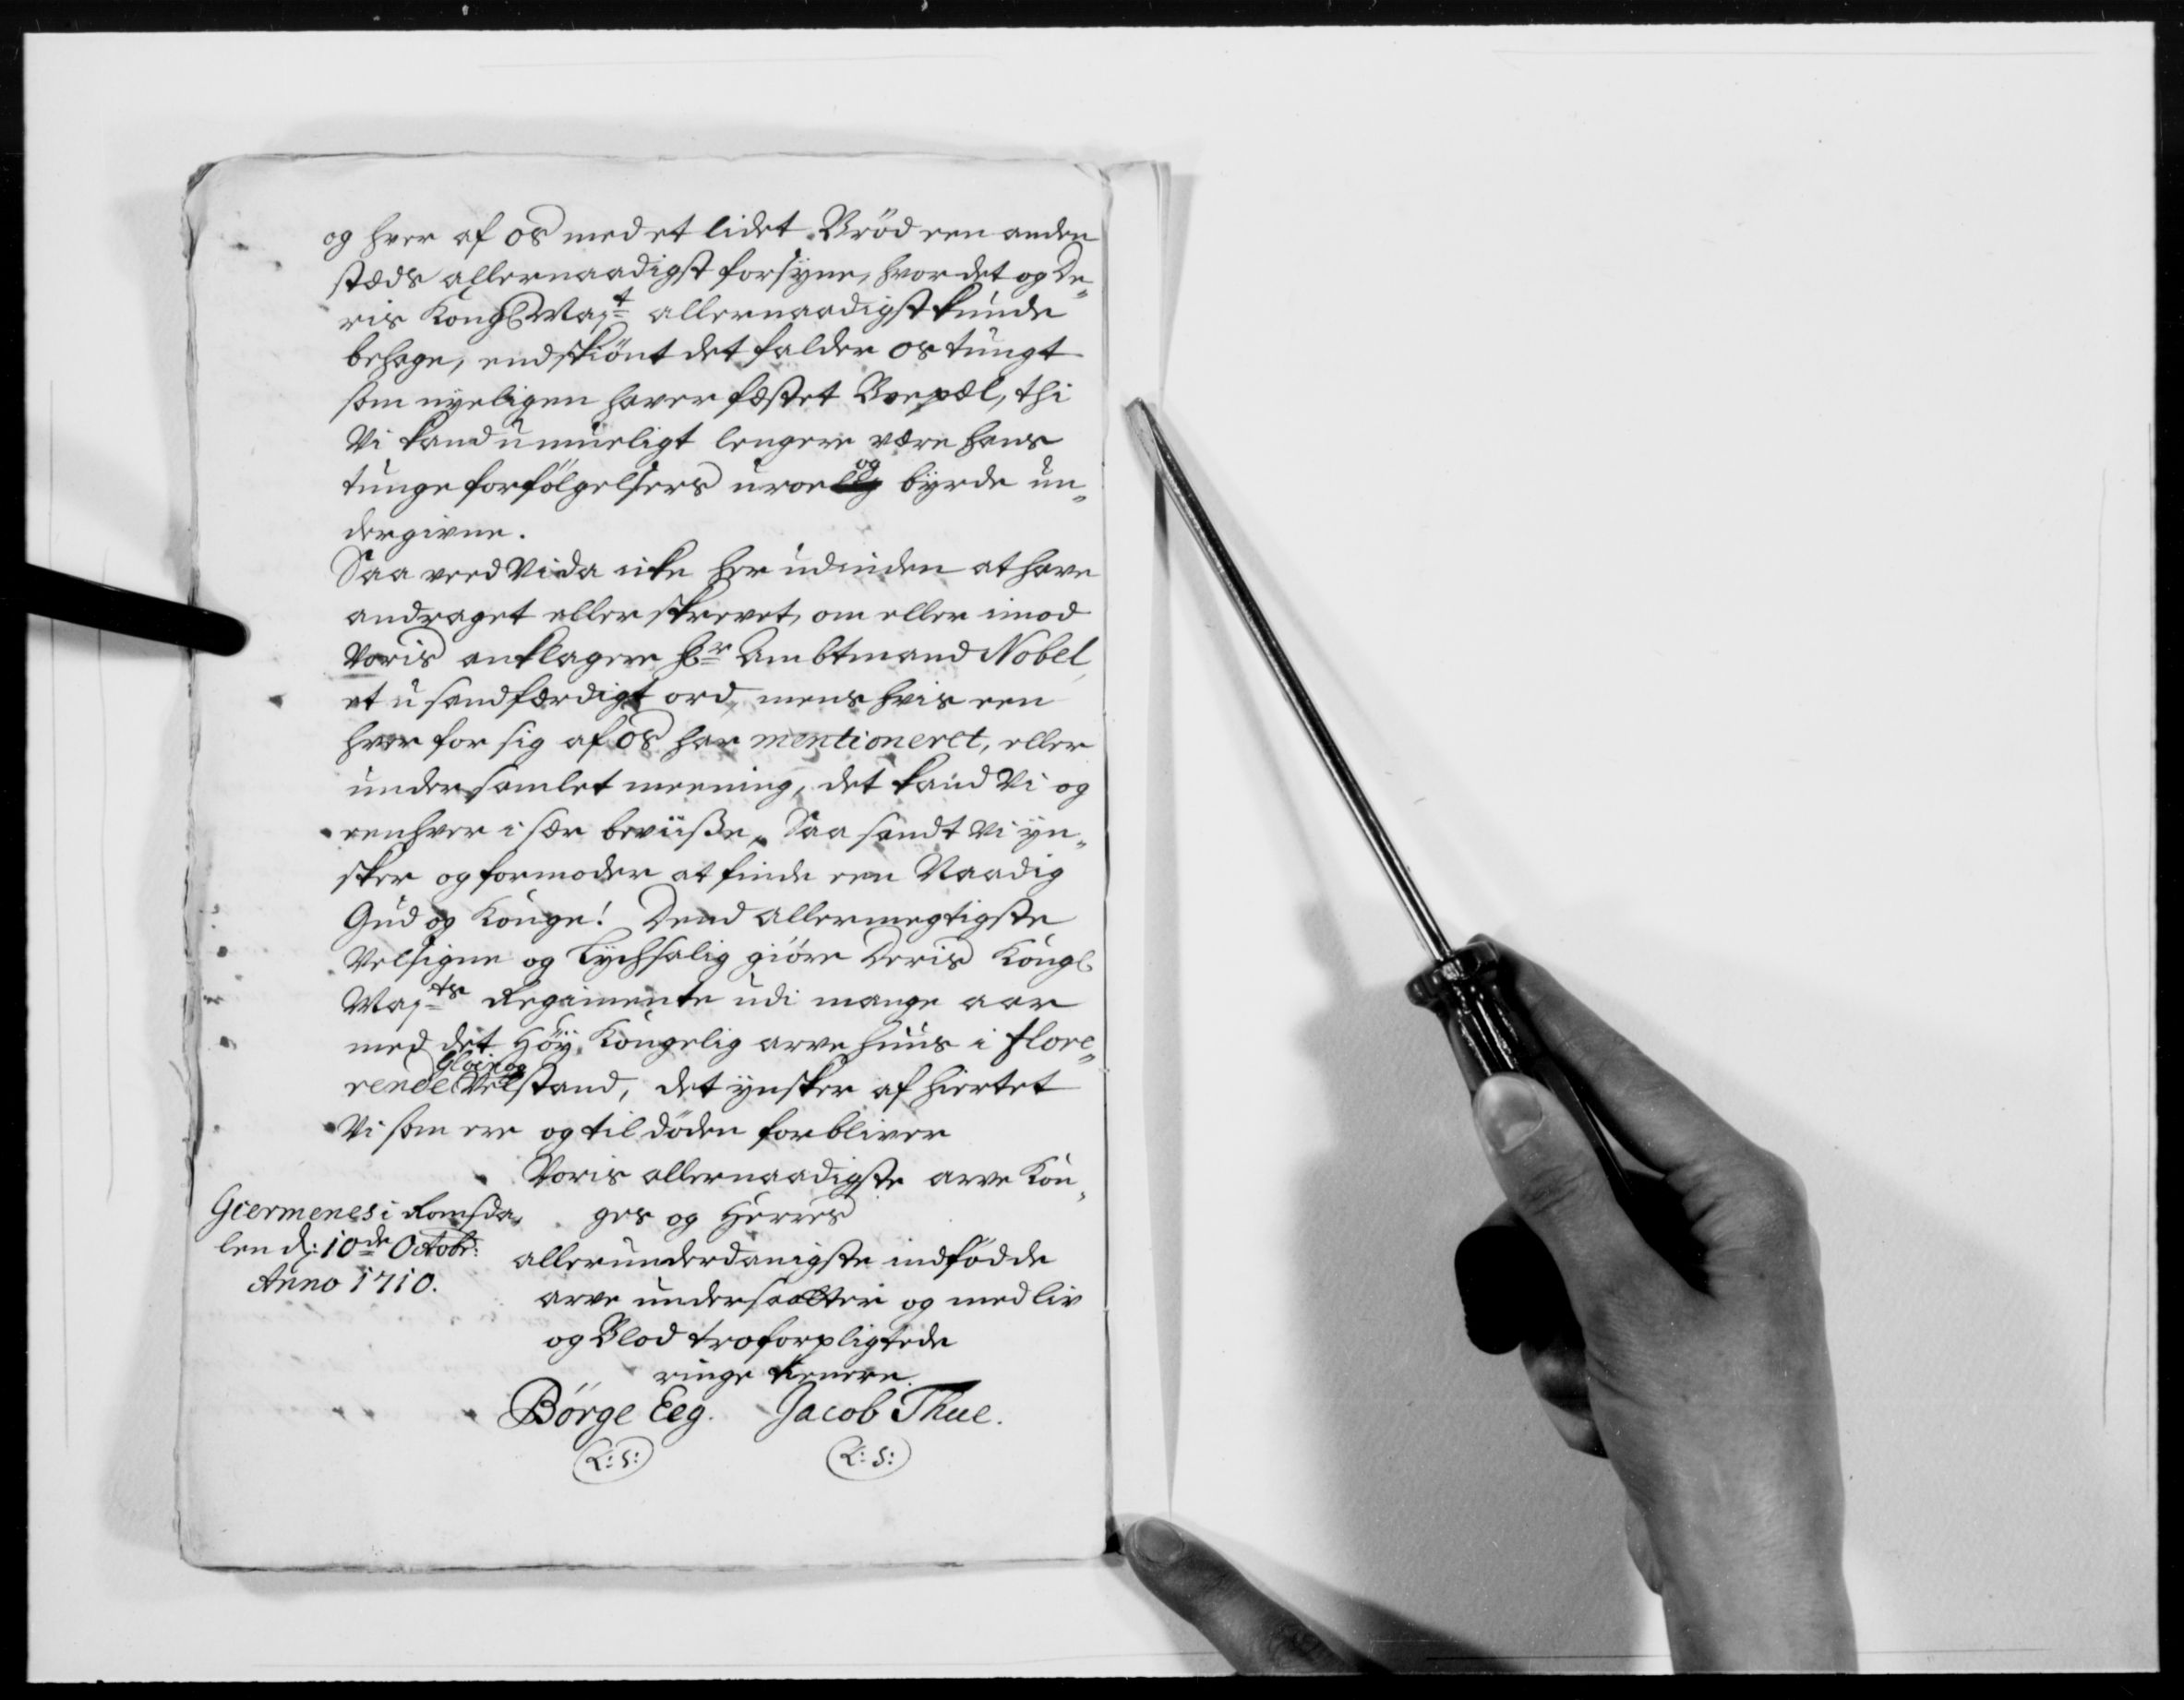 og hver af os med et lidet Brød een anden
stæds allernaadigst forsyne, hvor det og De„
ris Kongl Maj:t allernaadigst kunde
behage, endskiönt det falder os tungt
som nyeligen haver fæstet Boepæl, thi
Vi kand umueligt lengere være hans
tunge forfölgelsers uroe og byrde un„
dergivne.
Saa veed Vi da icke her udinden at have
andraget eller skrevet, om eller imod
Voris anklagere Hr Ambtmand Nobel,
et usandfærdigt ord, mens hvis een
hver for sig af os har mentioneret, eller
under samlet meening, det kand Vi og
eenhver i sær beviiße, Saa sandt vi yn„
sker og formoder at finde een Naadig
Gud og Konge! Dend allermegtigste
Velsigne og Lychsalig giöre Deris Kongl
Maj:ts Regimente udi mange aar
med det Höy Kongelig arve huus i flore„
rende Velstand, det ynsker af hiertet
Vi som ere og til döden forbliver
Voris allernaadigste arve Kon„
ges og Herres
allerunderdanigste indfödde
arve undersaatter og med liv
og Blod troforpligtede
ringe tienere.
Giermenes i Romsda„
len d: 10de Octobr:
Anno 1710.
Börge Eeg. Jacob Thue.
L: S: L: S: